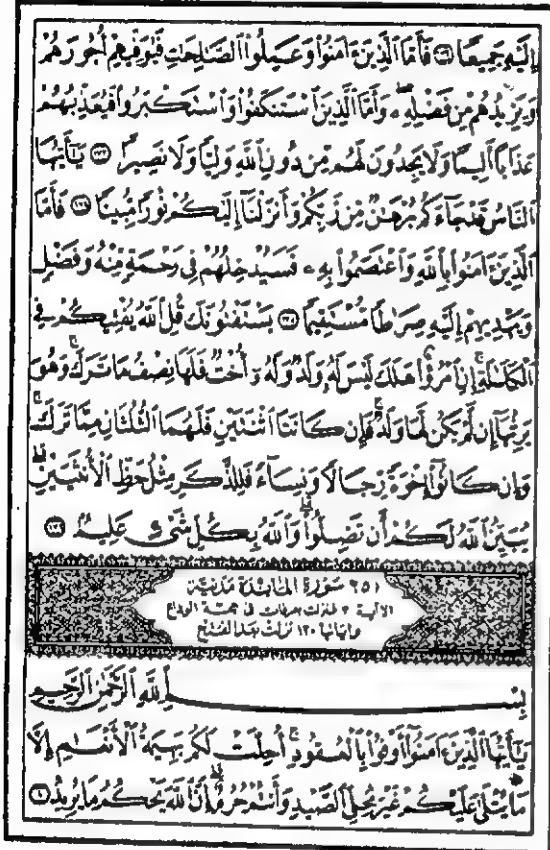 إِلَيْهِ جَمِيعًا ١٧٢ فَأَمَّا الَّذِينَ ءَامَنُوا وَعَمِلُوا الصَّالِحَاتِ فَيُوَفِّيهِمْ أُجُورَهُمْ
وَيَزِيدُهُم مِّن فَضْلِهِ وَأَمَّا الَّذِينَ اسْتَنكَفُوا وَاسْتَكْبَرُوا فَيُعَذِّبُهُمْ
عَذَابًا أَلِيمًا وَلَا يَجِدُونَ لَهُم مِّن دُونِ اللَّهِ وَلِيًّا وَلَا نَصِيرًا ١٧٣ يَٰٓأَيُّهَا
النَّاسُ قَدْ جَاءَكُم بُرْهَٰنٌ مِّن رَّبِّكُمْ وَأَنزَلْنَا إِلَيْكُمْ نُورًا مُّبِينًا ١٧٤ فَأَمَّا
الَّذِينَ ءَامَنُوا بِاللَّهِ وَاعْتَصَمُوا بِهِ فَسَيُدْخِلُهُمْ فِي رَحْمَةٍ مِّنْهُ وَفَضْلٍ
وَيَهْدِيهِمْ إِلَيْهِ صِرَٰطًا مُّسْتَقِيمًا ١٧٥ يَسْتَفْتُونَكَ قُلِ اللَّهُ يُفْتِيكُمْ فِي
الْكَلَٰلَةِ إِنِ امْرُؤٌا هَلَكَ لَيْسَ لَهُ وَلَدٌ وَلَهُ أُخْتٌ فَلَهَا نِصْفُ مَا تَرَكَ وَهُوَ
يَرِثُهَا إِن لَّمْ يَكُن لَّهَا وَلَدٌ فَإِن كَانَتَا اثْنَتَيْنِ فَلَهُمَا الثُّلُثَانِ مِمَّا تَرَكَ
وَإِن كَانُوا إِخْوَةً رِّجَالًا وَنِسَاءً فَلِلذَّكَرِ مِثْلُ حَظِّ الْأُنثَيَيْنِ
يُبَيِّنُ اللَّهُ لَكُمْ أَن تَضِلُّوا وَاللَّهُ بِكُلِّ شَيْءٍ عَلِيمٌ ١٧٦
(٥) سُورَةُ الْمَائِدَةِ مَدَنِيَّة
الا آية ٣ فنزلت بعرفات في حجة الوداع
وآياتها ١٢٠ نزلت بعد الفتح
بِسْمِ اللَّهِ الرَّحْمَٰنِ الرَّحِيمِ
يَٰٓأَيُّهَا الَّذِينَ ءَامَنُوا أَوْفُوا بِالْعُقُودِ أُحِلَّتْ لَكُم بَهِيمَةُ الْأَنْعَٰمِ إِلَّا
مَا يُتْلَىٰ عَلَيْكُمْ غَيْرَ مُحِلِّي الصَّيْدِ وَأَنتُمْ حُرُمٌ إِنَّ اللَّهَ يَحْكُمُ مَا يُرِيدُ ١